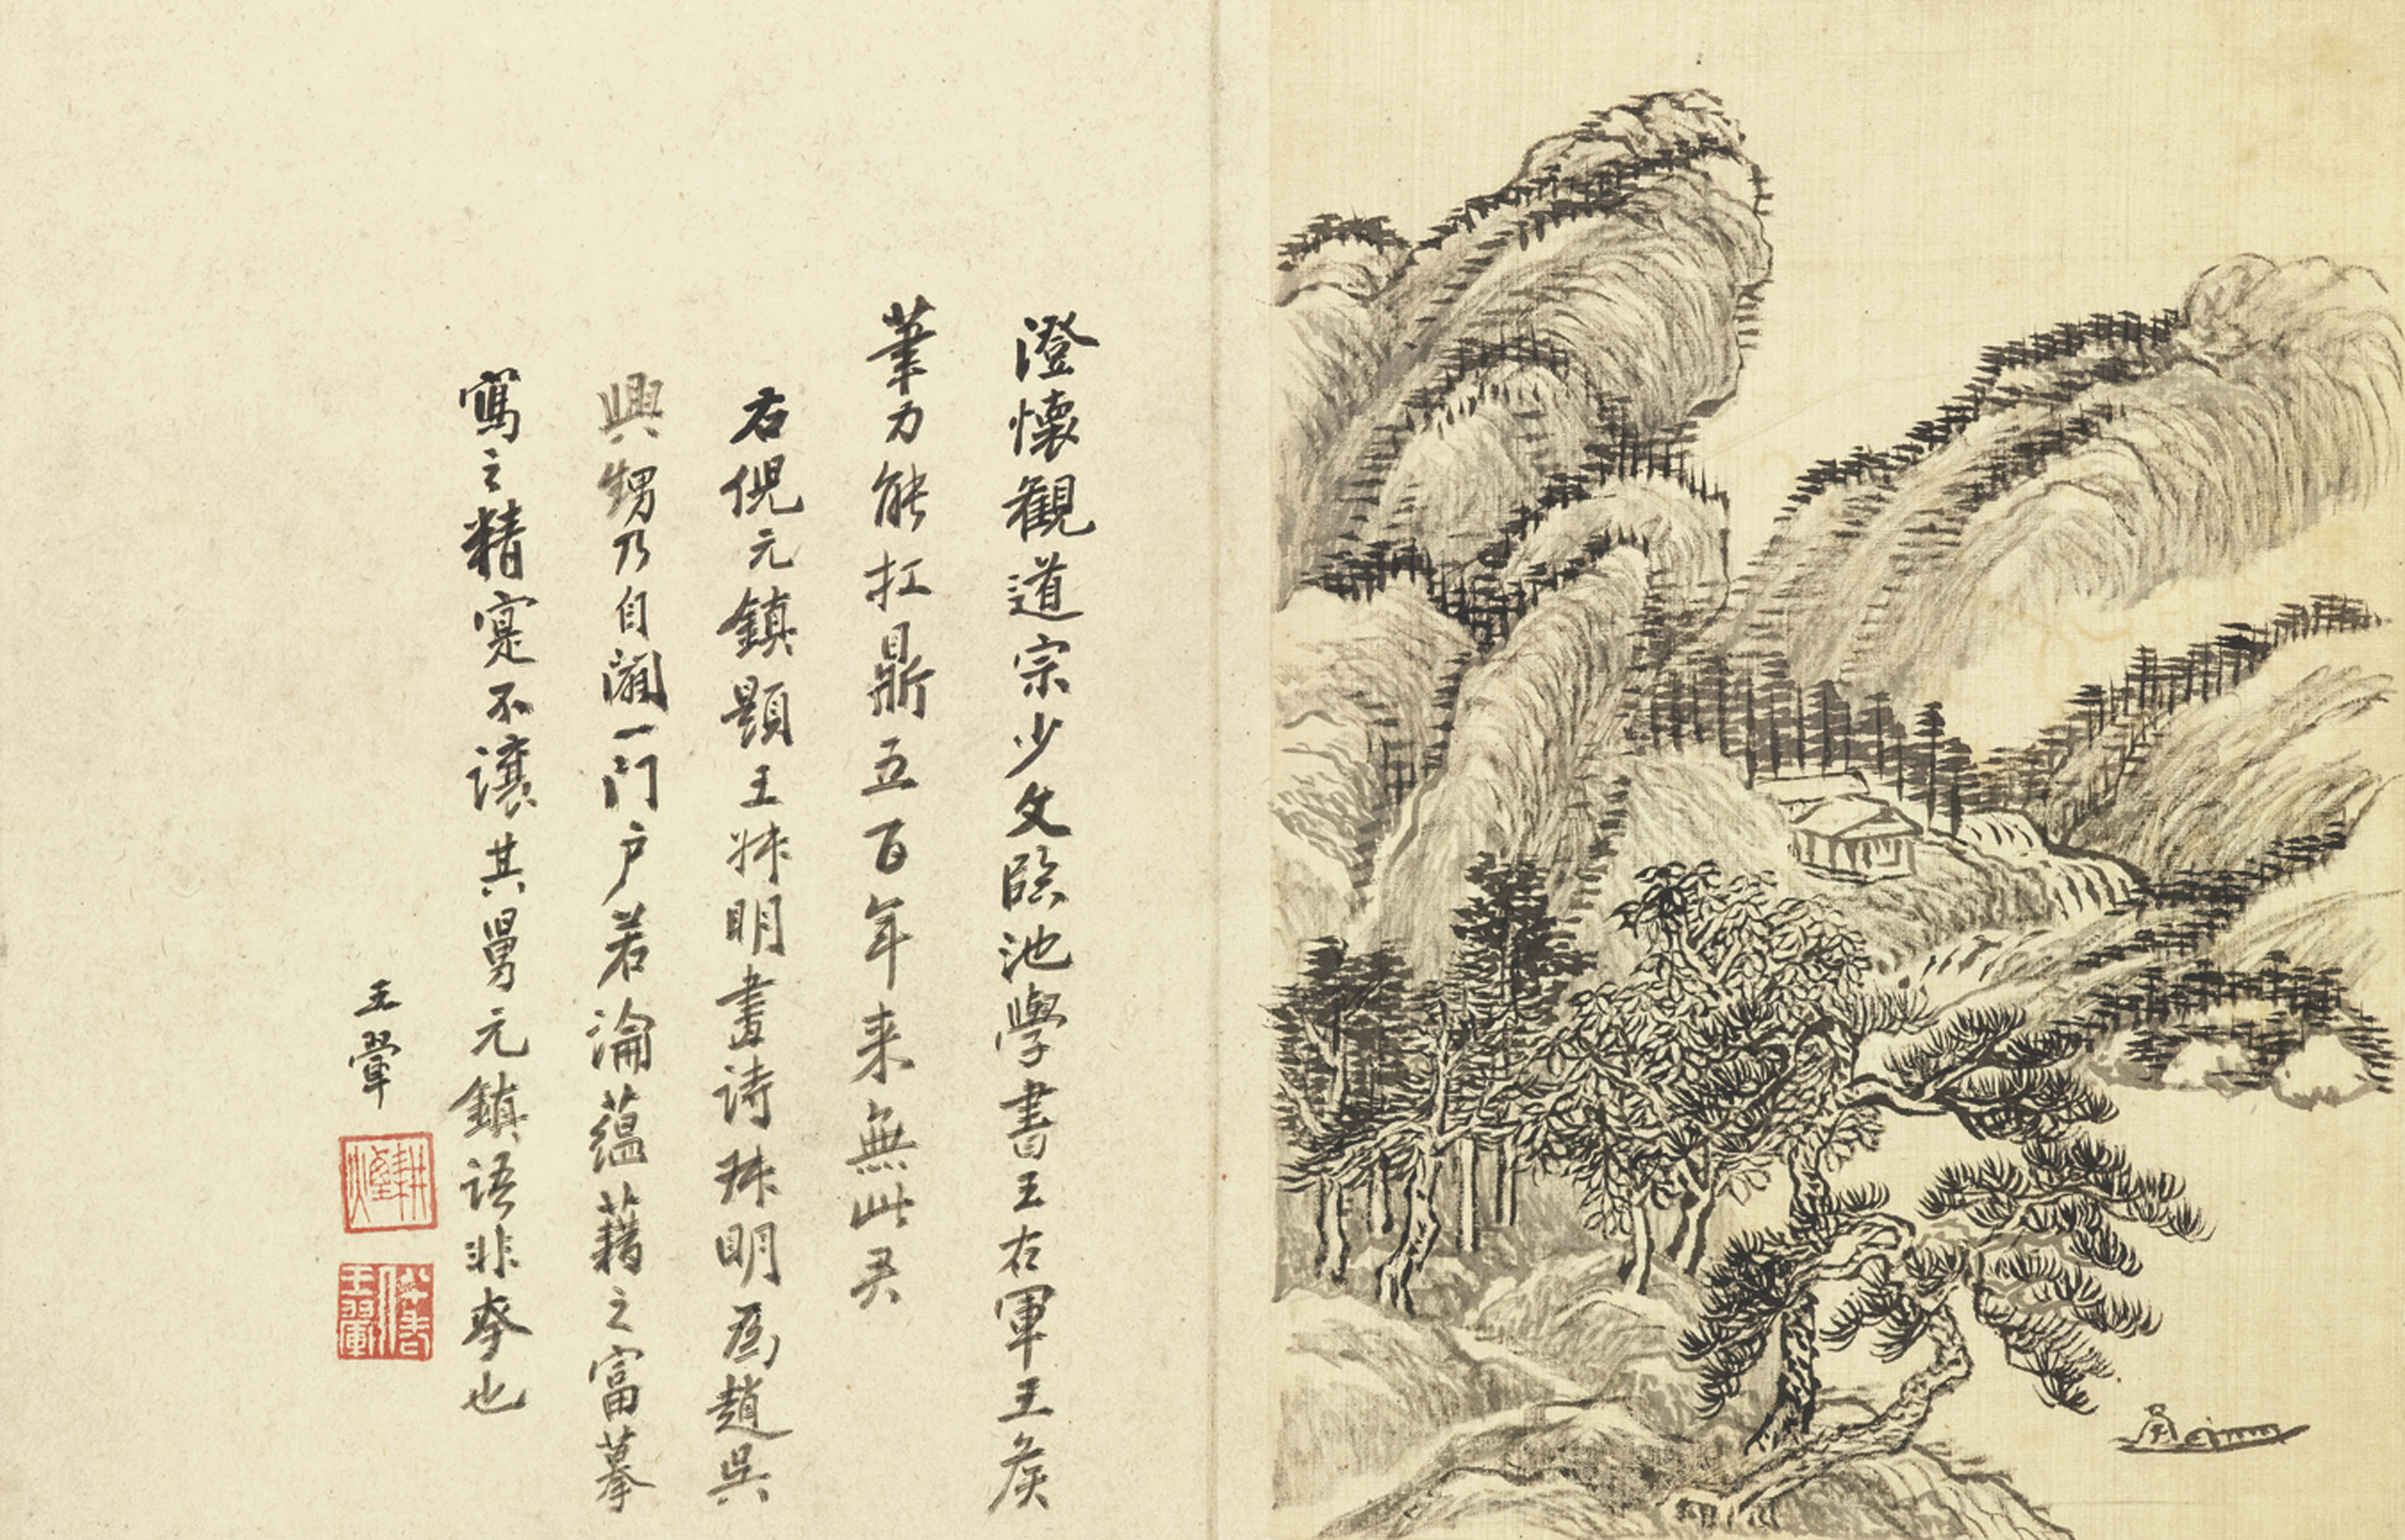 澄懷觀道宗少文臨池學書王右軍王侯
筆力能扛鼎五百年来無此君
右倪元鎮題王叔明畫诗叔明為趙吳
興甥乃自闢一門户若淪蘊藉之富摹
寫之精寔不讓其舅元鎮语非夸也
王翬
耕煙
王翬